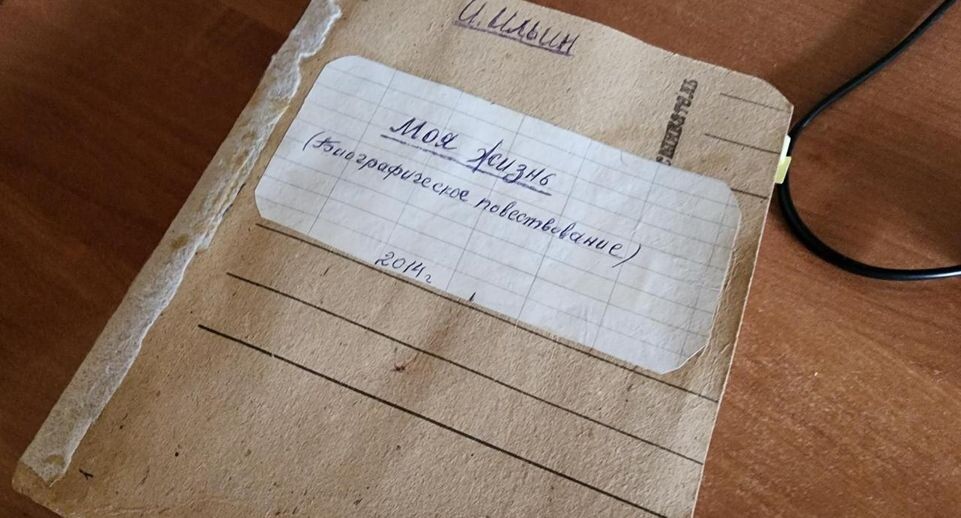 И. Ильин
Моя жизнь
(Биографическое повествование)
2014г